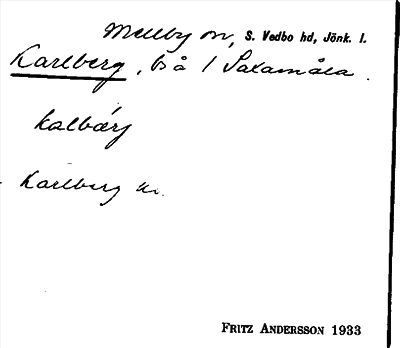 Mellby sn, S. Vedbo hd, Jönk. l.
Karlberg, bs å / Saxamåla.
kalbærj
Karlberg kr.
FRITZ ANDERSSON 1933